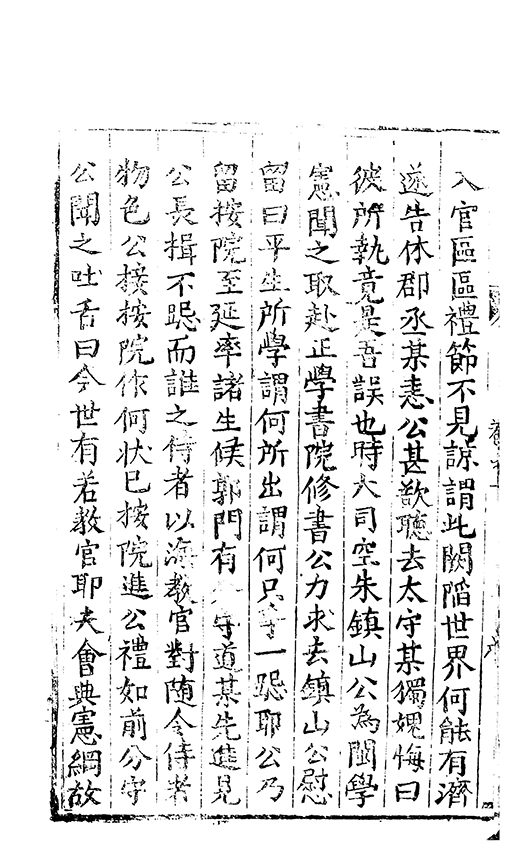 入官區區禮節不見諒謂此闕陷世界何能有濟
遂告休郡丞某恚公甚欲聽去太守某獨媿悔曰
彼所執竟是吾誤也時大司空朱鎮山公為閩學
憲聞之取赴正學書院修書公力求去鎮山公慰
留曰平生所學謂何所出謂何只一跽耶公乃
留按院至延率諸生候郭門有守道某先進見
公長揖不跽而誰之侍者以海教官對隨令侍者
物色公接按院作何狀已按院進公禮如前分守
公聞之吐舌曰今世有若教官耶夫會典憲綱故